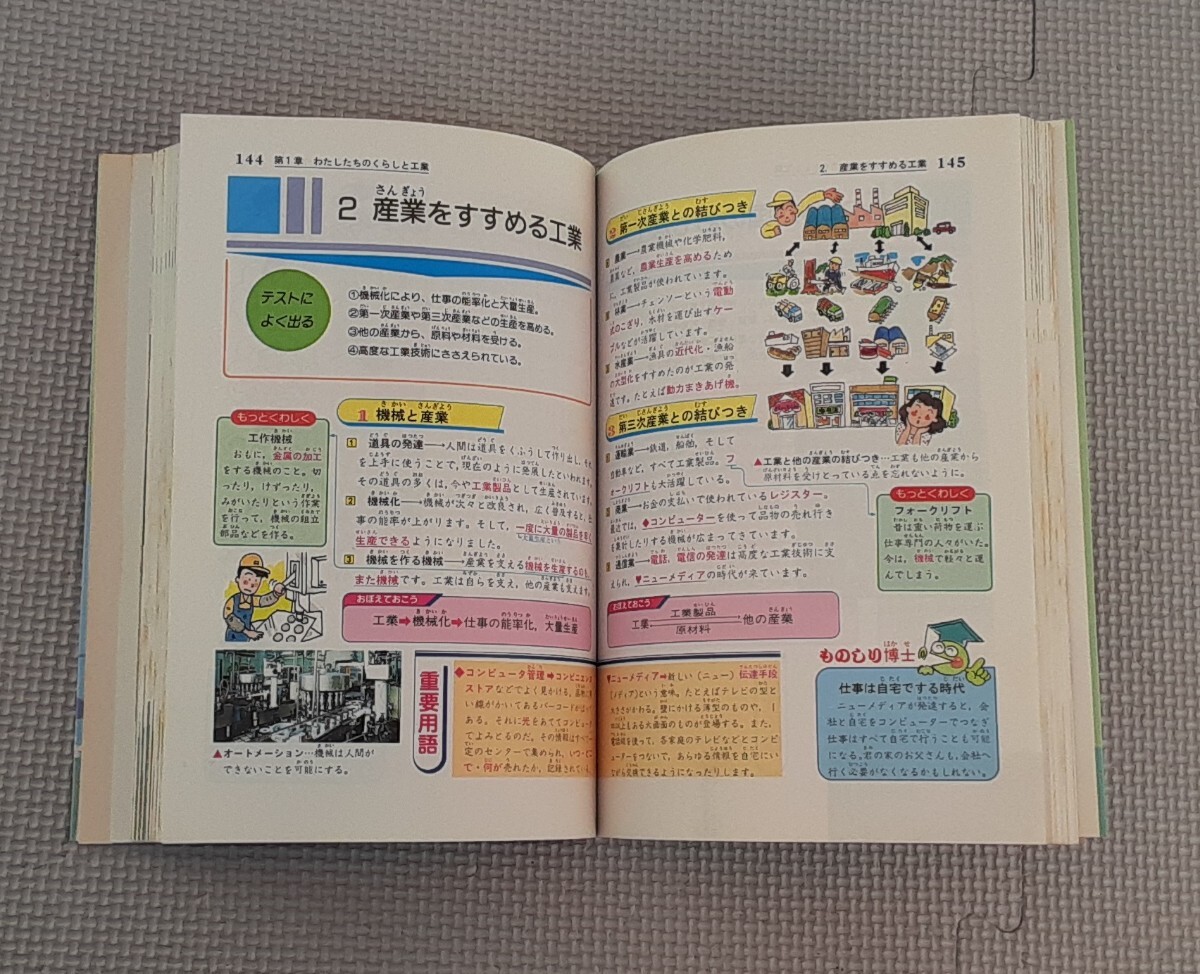 144 第1章 わたしたちのくらしと工業
2 産業をすすめる工業
テストに
よく出る
①機械化により、仕事の能率化と大量生産。
②第一次産業や第三次産業などの生産を高める。
③他の産業から、原料や材料を受ける。
④高度な工業技術にささえられている。
もっとくわしく
工作機械
おもに，金属の加工
をする機械のこと。切
ったり，けずったり，
みがいたりという作業
を行って，機械の組立
部品などを作る。
1 機械と産業
1 道具の発達→人間は道具をくふうして作り出し，それ
を上手に使うことで，現在のように発展したといわれます。
その道具の多くは，今や工業製品として生産されています。
2 機械化→機械が次々と改良され，広く普及すると，仕
事の能率が上がります。そして，一度に大量の製品を
大量生産という
生産できるようになりました。
3 機械を作る機械→産業を支える機械を生産するのも
また機械です。工業は自らを支え，他の産業も支えます。
おぼえておこう
工業➡機械化➡仕事の能率化，大量生産
▲オートメーション…機械は人間が
できないことを可能にする。
重要用語
◆コンピュータ管理➡コンビニエンス
ストアなどでよく見かける，品物に
い線がかいてあるバーコードがは
ある。それに光をあててコンピュー
てよみとるのだ。その情報はすべて
定のセンターで集められ，いつ・どこ
で・何が売れたか，記録されてい
2. 産業をすすめる工業 145
2 第一次産業との結びつき
農業→農業機械や化学肥料，
農薬など，農業生産を高めるため
に，工業製品が使われています。
林業→チェンソーという電動
式のこぎり，木材を運び出すケー
ブルなどが活躍しています。
水産業→漁具の近代化・漁船
の大型化をすすめたのが工業の発
達です。たとえば動力まきあげ機。
3 第三次産業との結びつき
運輸業→鉄道，船舶，そして
自動車など，すべて工業製品。フ
ォークリフトも大活躍している。
商業→お金の支払いで使われているレジスター。
最近では，◆コンピューターを使って品物の売れ行き
を集計したりする機械が広まってきています。
通信業→電話，電信の発達は高度な工業技術に支
えられ，♥ニューメディアの時代が来ています。
▲工業と他の産業の結びつき…工業も他の産業から
原材料を受けとっている点を忘れないように。
もっとくわしく
フォークリフト
昔は重い荷物を運ぶ
仕事専門の人々がいた。
今は，機械で軽々と運
んでしまう。
おぼえておこう
工業製品
工業 他の産業
原材料
♥ニューメディア➡新しい（ニュー）伝達手段
（メディア）という意味。たとえばテレビの型と
大きさがかわる。壁にかける薄型のものや，1
以上もある大画面のものが登場する。また，
電話線を使って，各家庭のテレビなどとコンピ
ューターをつないで，あらゆる情報を自宅にい
ながら交換できるようになったりします。
ものしり博士
仕事は自宅でする時代
ニューメディアが発達すると，会
社と自宅をコンピューターでつなぎ
仕事はすべて自宅で行うことも可能
になる。君の家のお父さんも，会社へ
行く必要がなくなるかもしれない。